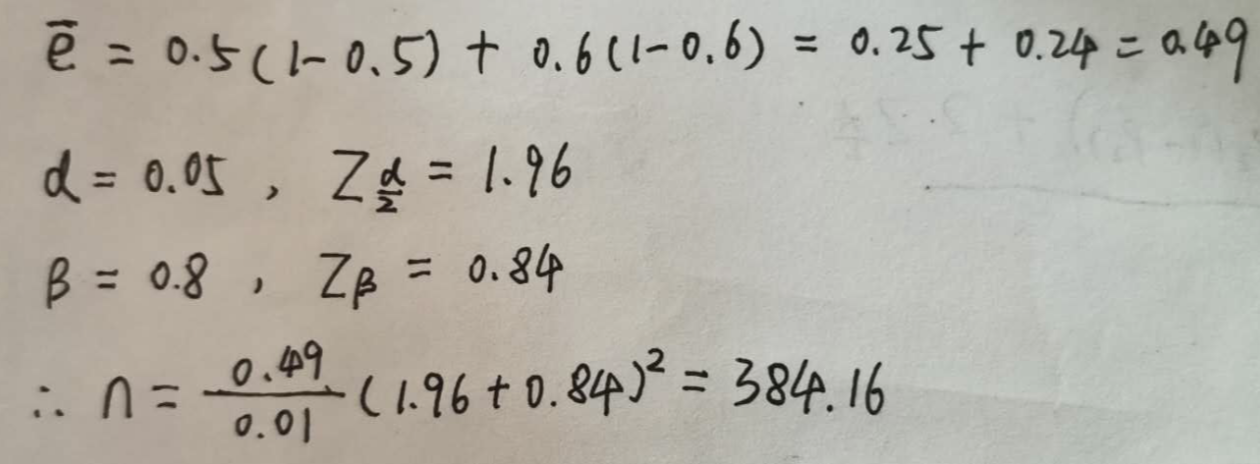 ē = 0.5(1-0.5) + 0.6(1-0.6) = 0.25 + 0.24 = 0.49
α = 0.05 , Z_{α/2} = 1.96
β = 0.8 , Z_β = 0.84
∴ n = \frac{0.49}{0.01} (1.96 + 0.84)² = 384.16